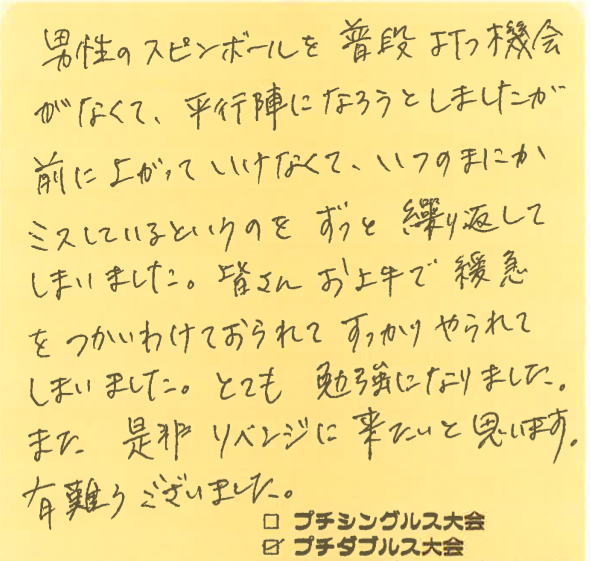 男性のスピンボールを普段打つ機会
がなくて、平行陣になろうとしましたが
前に上がっていけなくて、いつのまにか
ミスしているというのをずっと繰り返して
しまいました。皆さんお上手で緩急
をつかいわけておられてすっかりやられて
しまいました。とても勉強になりました。
また是非リベンジに来たいと思います。
有難うございました。
□ プチシングルス大会
☑ プチダブルス大会